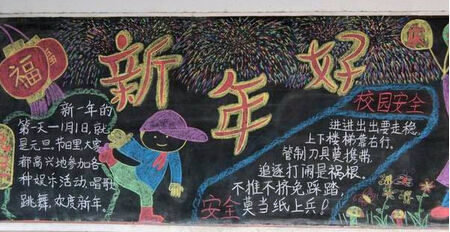 福
新年好
新一年的
第一天一月1日,就
是元旦,节日里大家
都高兴地参加各
种娱乐活动,唱歌
跳舞,欢度新年。
校园安全
进进出出要走稳,
上下楼梯靠右行,
管制刀具莫携带,
追逐打闹是祸根,
不推不挤免踩踏,
莫当纸上兵!
安全